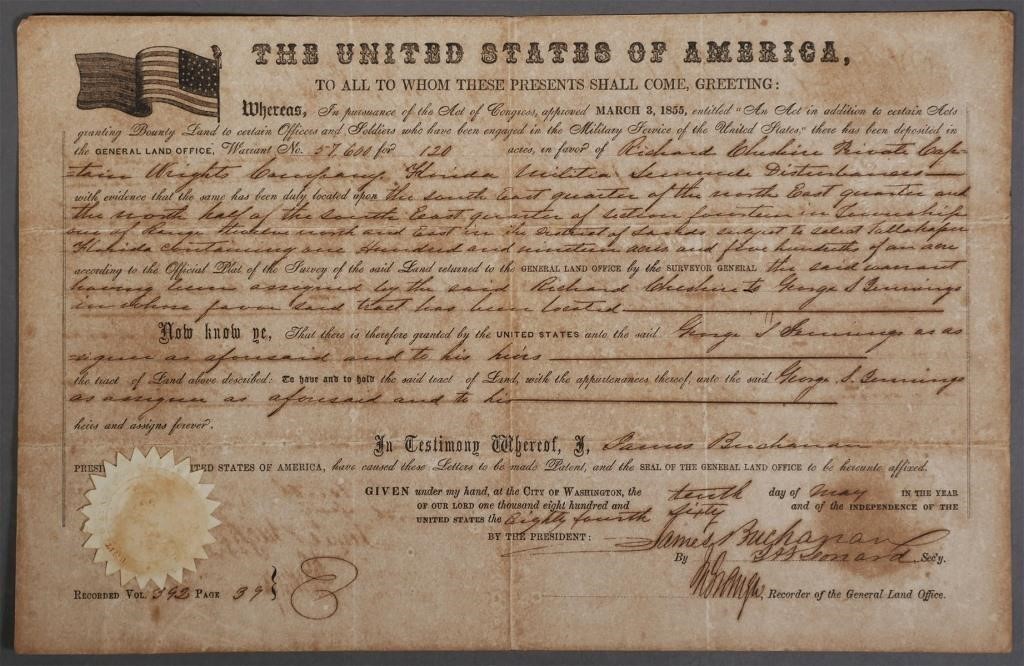 THE UNITED STATES OF AMERICA,
TO ALL TO WHOM THESE PRESENTS SHALL COME, GREETING:
Whereas, In pursuance of the Act of Congress, approved MARCH 3, 1855, entitled "An Act in addition to certain Acts
granting Bounty Land to certain Officers and Soldiers who have been engaged in the Military Service of the United States," there has been deposited in
the GENERAL LAND OFFICE, Warrant No. 57,600 for 120 acres, in favor of Richard Cheshire Private Cap-
-tain Wrights Company Florida Militia Seminole Disturbances
with evidence that the same has been duly located upon the South East quarter of the North East quarter and
the North half of the South East quarter of Section fourteen in Township
one of Range North and East in the District of Lands subject to sale at Tallahassee
Florida containing one Hundred and nineteen acres and five hundredths of an acre
according to the Official Plat of the Survey of the said Land returned to the GENERAL LAND OFFICE by the SURVEYOR GENERAL the said warrant
having been assigned by the said Richard Cheshire to George S Jennings
in whose favor said tract has been located
Now know ye, That there is therefore granted by the UNITED STATES unto the said George S Jennings as as
-signee as aforesaid and to his heirs
the tract of Land above described: To have and to hold the said tract of Land, with the appurtenances thereof, unto the said George S. Jennings
as assignee as aforesaid and to his
heirs and assigns forever.
In Testimony Whereof, I, James Buchanan
PRESI TED STATES OF AMERICA, have caused these Letters to be made Patent, and the SEAL OF THE GENERAL LAND OFFICE to be hereunto affixed.
GIVEN under my hand, at the CITY OF WASHINGTON, the tenth day of May IN THE YEAR
OF OUR LORD one thousand eight hundred and sixty and of the INDEPENDENCE OF THE
UNITED STATES the Eighty fourth
BY THE PRESIDENT: James Buchanan
By Leonard Sec'y.
RECORDED VOL. 392 PAGE 39
Recorder of the General Land Office.